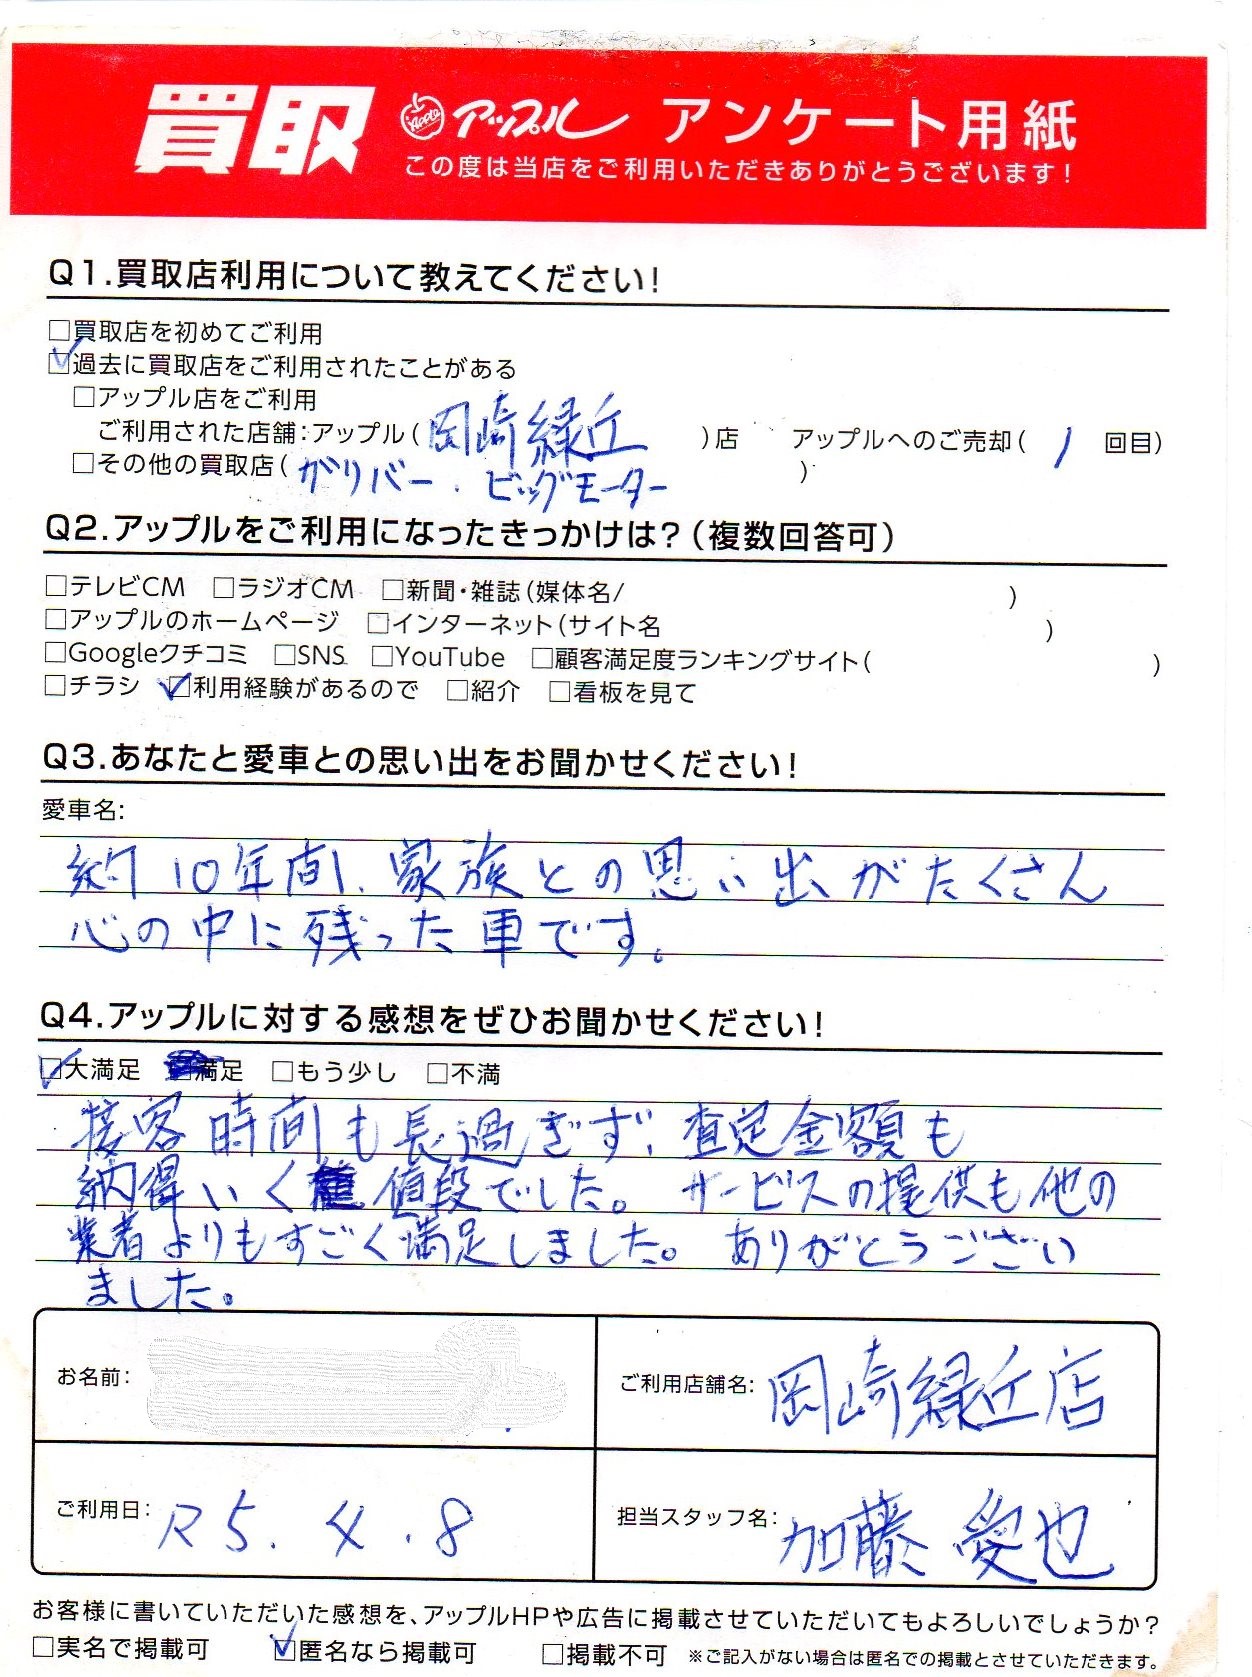 買取 Apple アップル アンケート用紙
この度は当店をご利用いただきありがとうございます!
Q1.買取店利用について教えてください!
□買取店を初めてご利用
☑過去に買取店をご利用されたことがある
□アップル店をご利用
ご利用された店舗:アップル(岡崎緑丘)店 アップルへのご売却(1回目)
□その他の買取店(ガリバー.ビッグモーター)
Q2.アップルをご利用になったきっかけは?(複数回答可)
□テレビCM □ラジオCM □新聞・雑誌(媒体名/ )
□アップルのホームページ □インターネット(サイト名 )
□Googleクチコミ □SNS □YouTube □顧客満足度ランキングサイト( )
□チラシ ☑利用経験があるので □紹介 □看板を見て
Q3.あなたと愛車との思い出をお聞かせください!
愛車名:
約10年間、家族との思い出がたくさん
心の中に残った車です。
Q4.アップルに対する感想をぜひお聞かせください!
☑大満足 満足 □もう少し □不満
接客時間も長過ぎず、査定金額も
納得いく値段でした。サービスの提供も他の
業者よりもすごく満足しました。ありがとうござい
ました。
お名前:
ご利用店舗名:岡崎緑丘店
ご利用日:R5.4.8
担当スタッフ名:加藤 愛也
お客様に書いていただいた感想を、アップルHPや広告に掲載させていただいてもよろしいでしょうか?
□実名で掲載可 ☑匿名なら掲載可 □掲載不可 ※ご記入がない場合は匿名での掲載とさせていただきます。